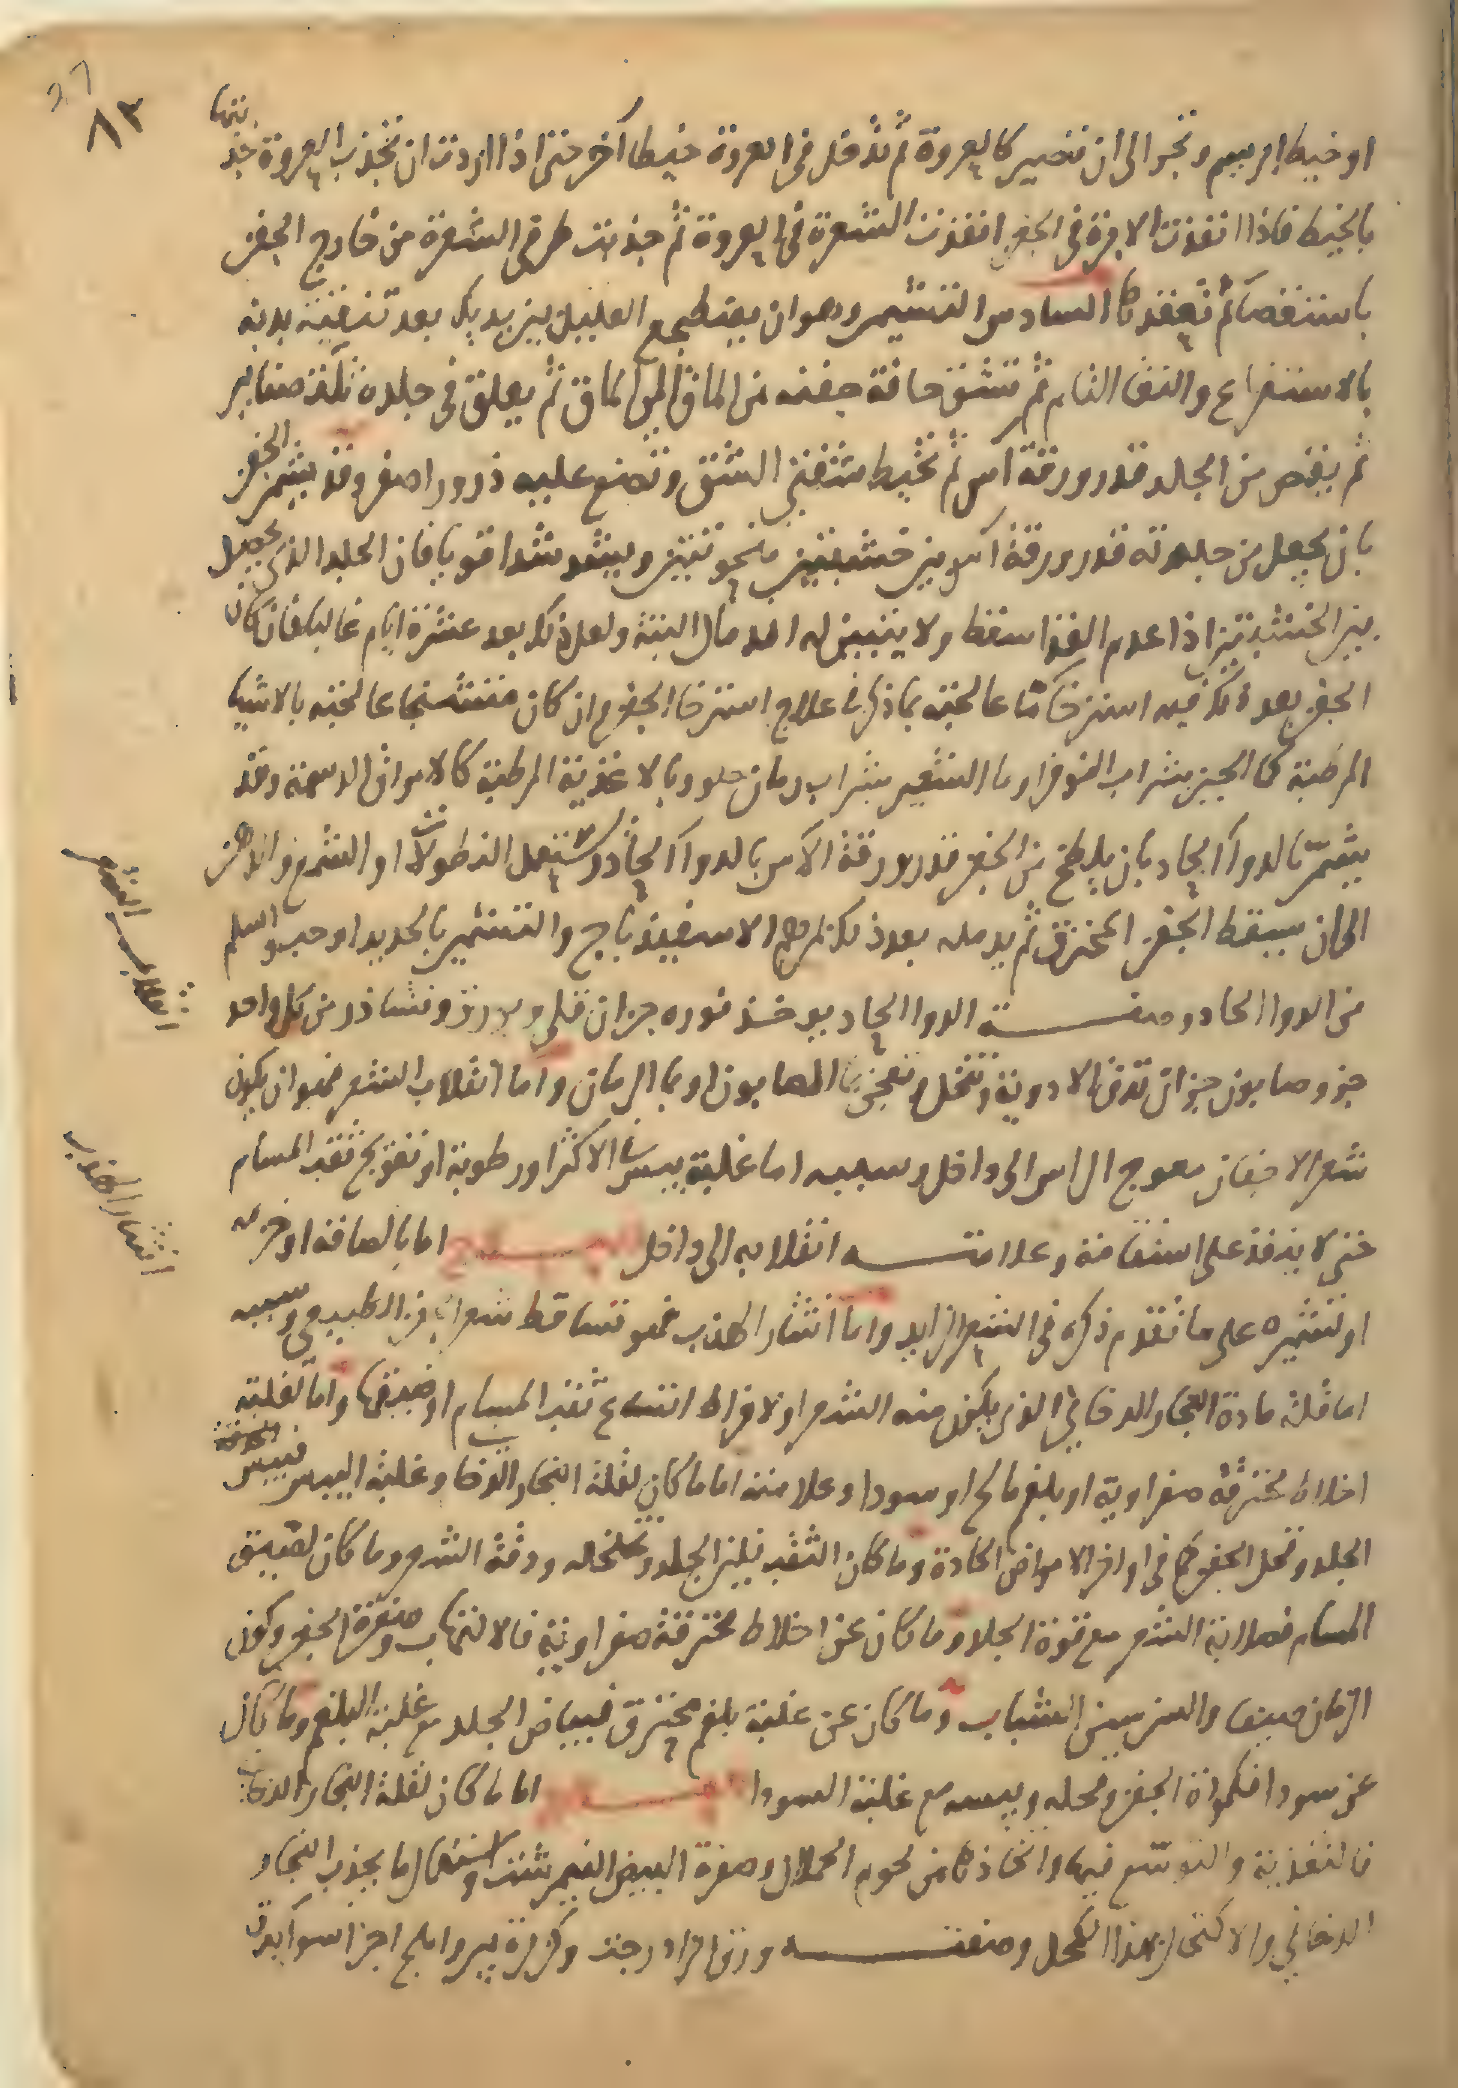 ٨٣
او خيط ابريسم وتجر الى ان تصير كالعروة ثم تدخل في العروة خيطا آخر حتى اذا اردت ان تجذب العروة جذبتها
بالخيط فاذا انفذت الابرة في الجفن انفذت الشعرة في العروة ثم جذبت طرفي الشعرة من خارج الجفن
باستقصا ثم تعقدها السادس التشمير وهو ان يضطجع العليل بين يديك بعد تنقية بدنه
بالاستفراغ والنقا التام ثم تشق حافة جفنه من الماق الى الماق ثم يعلق في جلده ثلاث صنانير
ثم يقص من الجلد قدر ورقة آس ثم تخيط شفتي الشق وتضع عليه ذرور اصفر وقد يشمر الجفن
بان يجعل من جلدته قدر ورقة آس بين خشبتين ويشد شدا قويا فان الجلد الذي يحصل
بين الخشبتين اذا عدم الغذا سقط ولا يتبين له اندمال البتة ولعل ذلك بعد عشرة ايام غالبا فان كان
الجفن بعد ذلك فيه استرخا عالجته بما ذكر في علاج استرخا الجفن وان كان متشنجا عالجته بالاشيا
المرطبة كالجبن بشراب النوفر او ما الشعير بشراب رمان حلو وبالاغذية المرطبة كالامراق الدسمة وقد
يشمر بالدوا الحاد بان يلطخ من الجفن قدر ورقة الآس بالدوا الحاد ويستعمل النطولات او الشمع والدهن
الى ان يسقط الجفن المحترق ثم يدمله بعد ذلك بمرهم الاسفيذباج والتشمير بالحديد اوجب واسلم
من الدوا الحاد وصفة الدوا الحاد يوخذ نوره جزان قلي وبورق ونشاذر من كل واحد
جز وصابون جزان تدق الادوية وتنخل وتعجن بما الصابون او بما الرمان واما انقلاب الشعر فهو ان يكون
شعر الاجفان معوج الراس الى داخل وسببه اما غلبة يبس في الاكثر او رطوبة او تعويج ثقب المسام
حتى لا ينفذ على استقامة وعلامته انقلابه الى داخل العلاج اما بالصاقه او خرمه
او تشميره على ما تقدم ذكره في الشعر الزايد واما انتثار الهدب فهو تساقط شعرا الطبيعي وسببه
اما قلة مادة البخار الدخاني الذي يكون منه الشعر او لافراط اتساع ثقب المسام او ضيقها واما لغلبة
اخلاط محترقة صفراوية او بلغم مالح او سودا وعلامته اما ما كان لقلة البخار الدخا وغلبة اليبس فيبس
الجلد وقحل الجفن في اواخر الامراض الحادة وما كان الثقب فلين الجلد وتخلخله ورقة الشعر وما كان لضيق
المسام فصلابة الشعر مع قوة الجلد وما كان عن اخلاط محترقة صفراوية فالالتهاب وصفرة الجفن وكون
الزمان صيفا والسن سن الشباب وما كان عن غلبة بلغم محترق فبياض الجلد مع غلبة البلغم وما كان
عن سودا فكمودة الجفن وقحله ويبسه مع غلبة السودا العلاج اما ما كان لقلة البخار الدخاني
فالتغذية والتوسع فيها واتخاذها من لحوم الحملان وصفرة البيض النيمرشت واستعمال ما يجذب البخار
الدخاني والاكتحال بهذا الكحل وصفته ورق اجزا سوا
انقلاب الشعر
انتثار الهدب